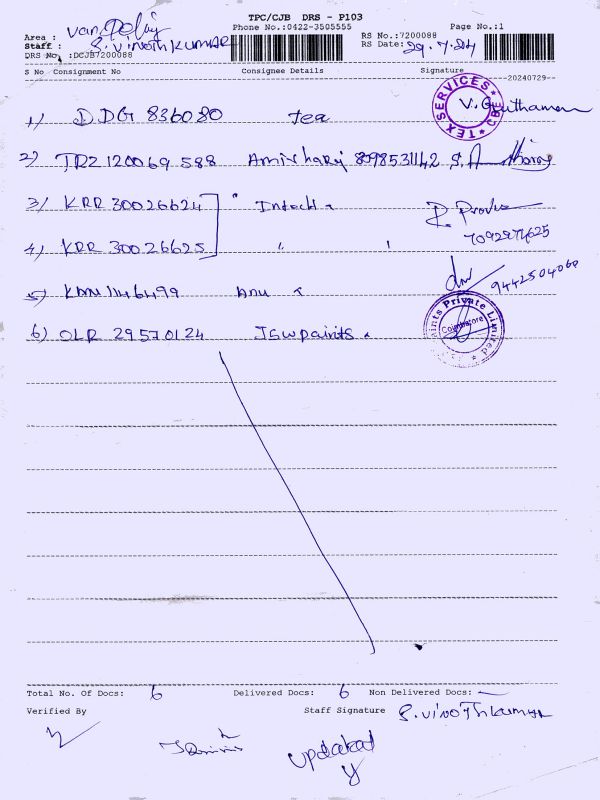 TPC/CJB DRS - P103
Phone No.:0422-3505555 Page No.:1
Area :
Staff : S. VINOTH KUMAR RS No.:7200088
DRS No. :DCJB7200088 RS Date: 29.7.24
S No Consignment No Consignee Details Signature
20240729
1) DDG 836080 Tea
TEX SERVICES * CBE *
2) TRZ 120069588 Amirhary 8998531142
3) KRR 30026624 " Intech
4) KRR 30026625 " "
7092977625
5) KNN 1146499 Anu
9442504060
6) OLR 29570124 JSW paints
Paints Private Limited
Coimbatore
Total No. Of Docs: 6 Delivered Docs: 6 Non Delivered Docs: —
Verified By Staff Signature S. Vinothkumar
updated